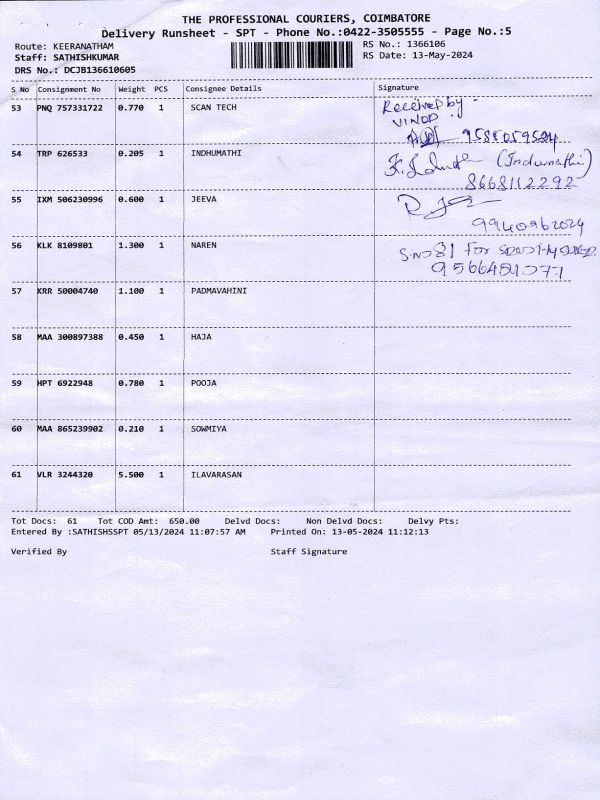 THE PROFESSIONAL COURIERS, COIMBATORE
Delivery Runsheet - SPT - Phone No.:0422-3505555 - Page No.:5
Route: KEERANATHAM RS No.: 1366106
Staff: SATHISHKUMAR RS Date: 13-May-2024
DRS No.: DCJB136610605
S No Consignment No Weight PCS Consignee Details Signature
53 PNQ 757331722 0.770 1 SCAN TECH Received by
VINOD
54 TRP 626533 0.205 1 INDHUMATHI (Indumathi)
8668112292
55 IXM 506230996 0.600 1 JEEVA
9940962024
56 KLK 8109801 1.300 1 NAREN S.NO 81 For
57 KRR 50004740 1.100 1 PADMAVAHINI
58 MAA 300897388 0.450 1 HAJA
59 HPT 6922948 0.780 1 POOJA
60 MAA 865239902 0.210 1 SOWMIYA
61 VLR 3244320 5.500 1 ILAVARASAN
Tot Docs: 61 Tot COD Amt: 650.00 Delvd Docs: Non Delvd Docs: Delvy Pts:
Entered By :SATHISHSSPT 05/13/2024 11:07:57 AM Printed On: 13-05-2024 11:12:13
Verified By Staff Signature